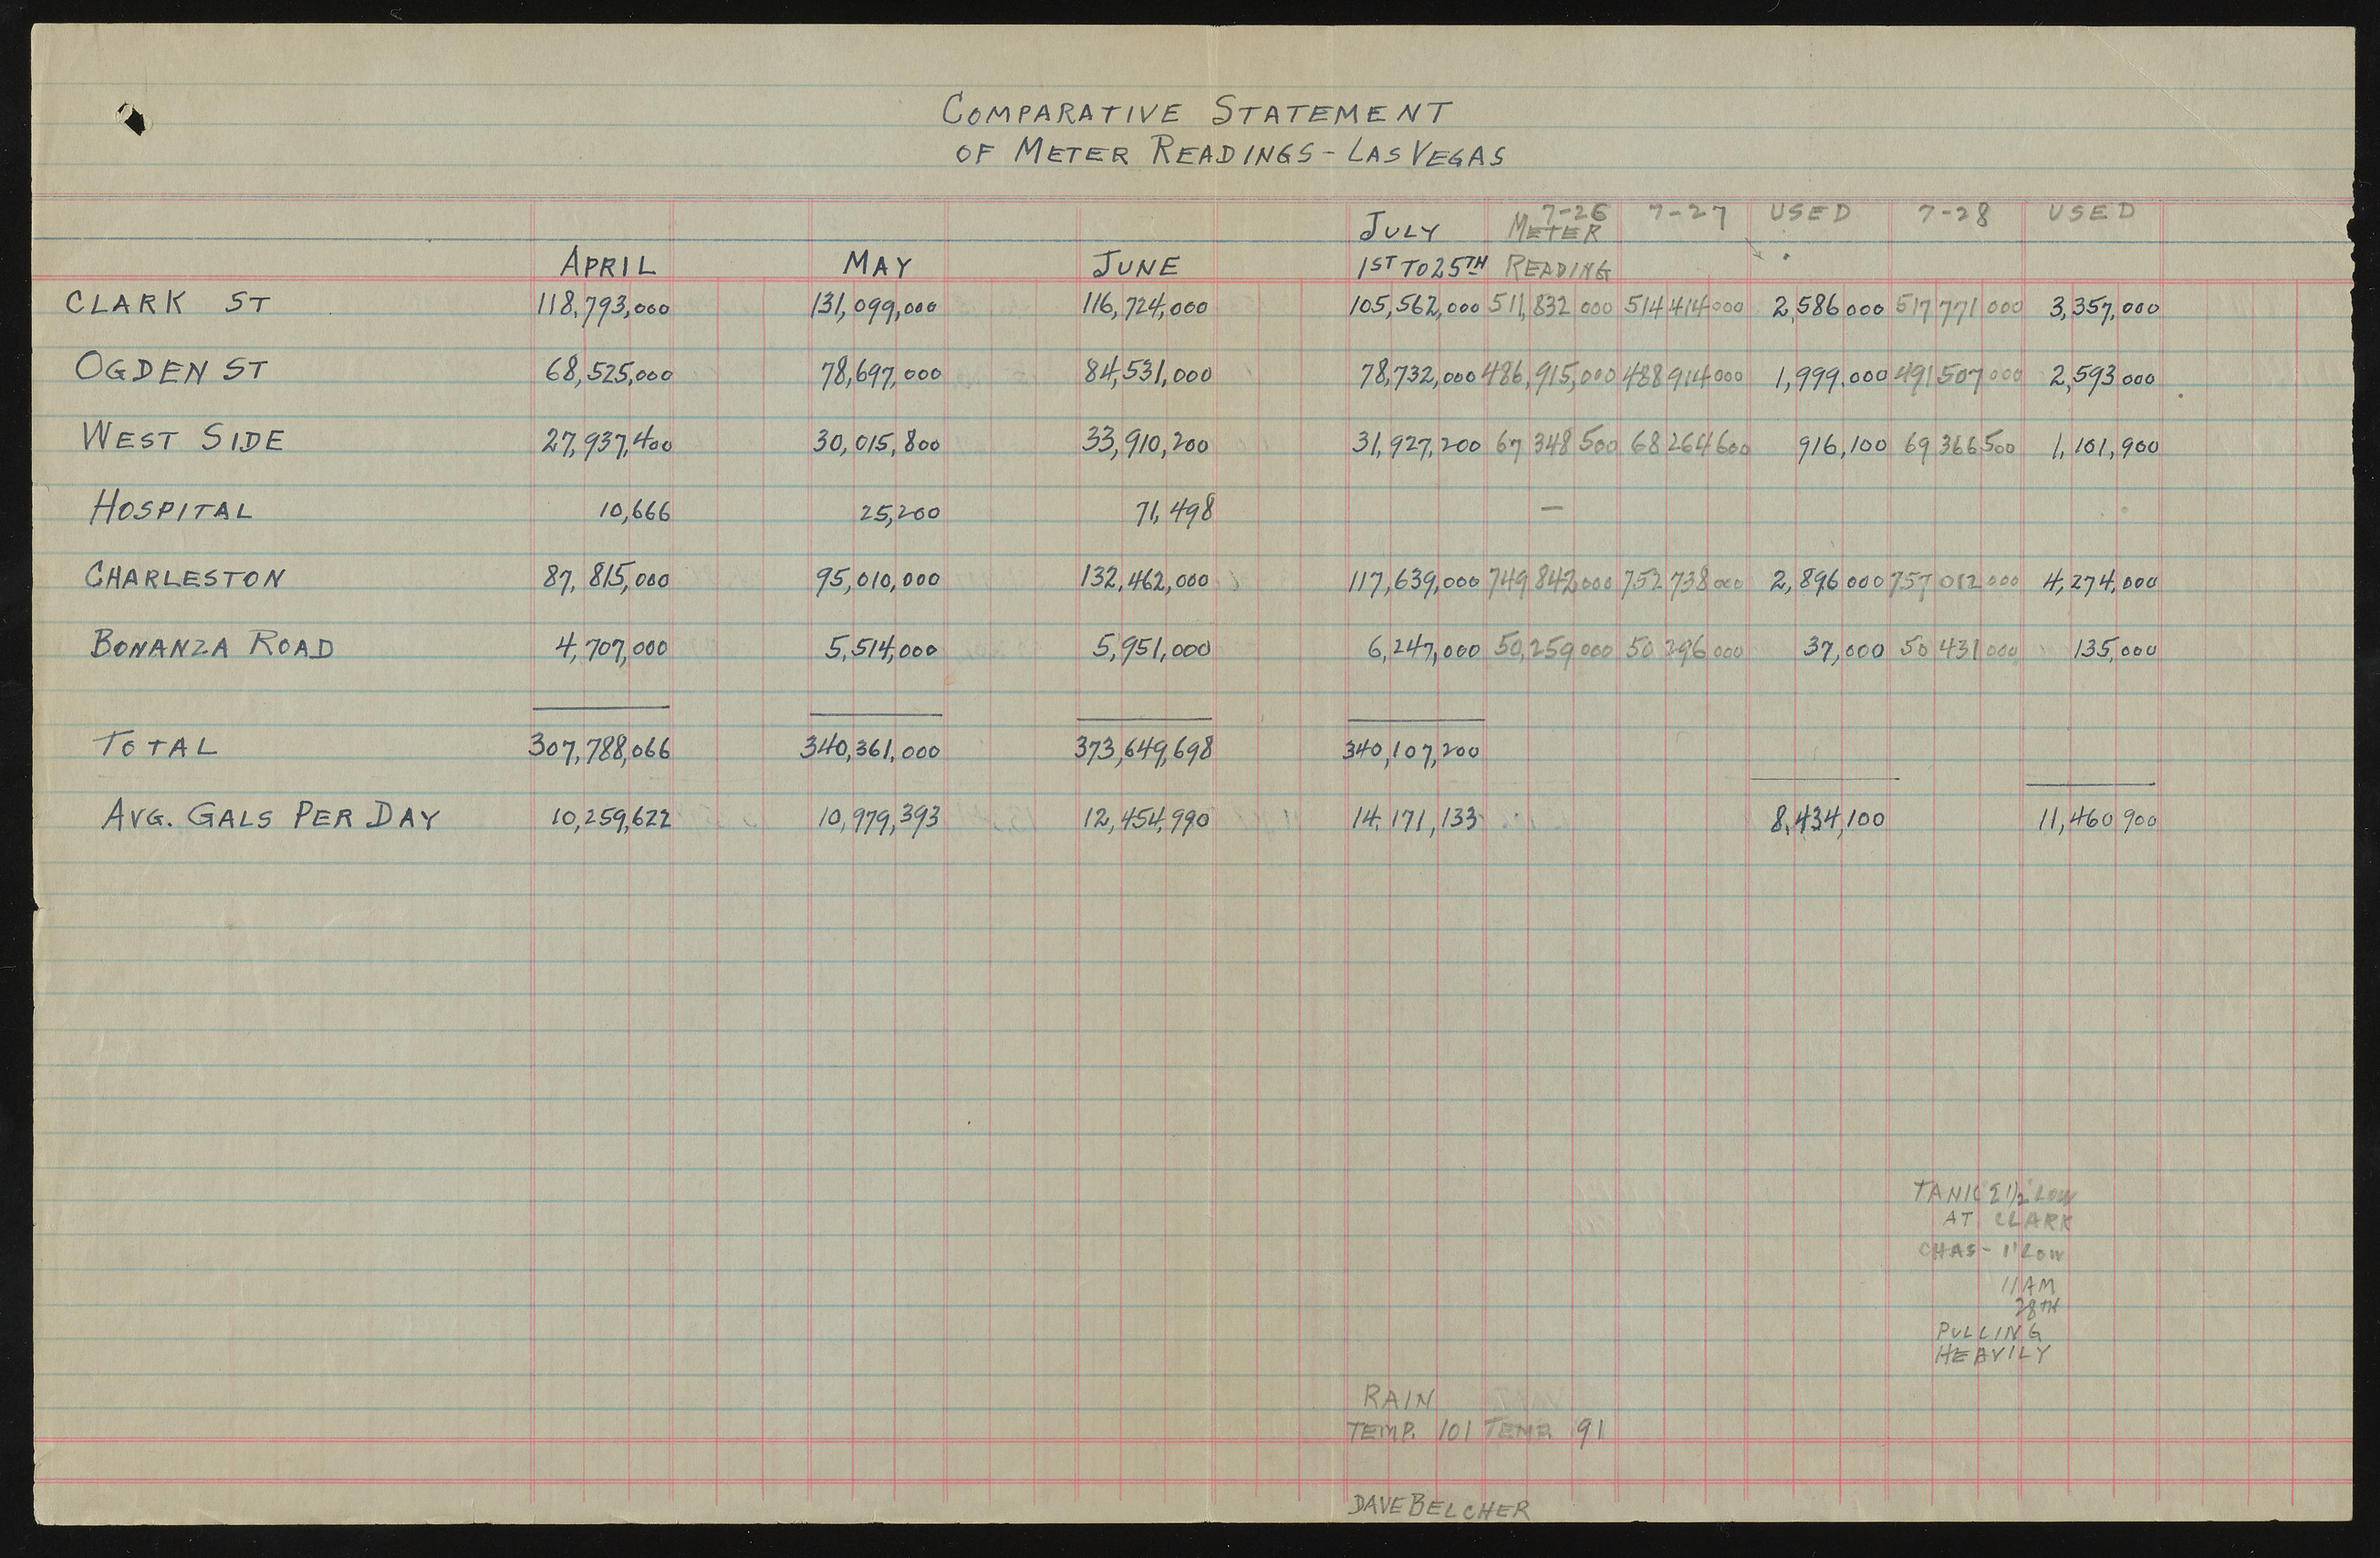 COMPARATIVE STATEMENT
OF METER READINGS - LAS VEGAS
7-26 7-27 USED 7-28 USED
JULY METER
APRIL MAY JUNE 1ST TO 25TH READING
CLARK ST 118,793,000 131,099,000 116,724,000 105,562,000 511,832 000 514 414 000 2,586 000 517 771 000 3,357,000
OGDEN ST 68,525,000 78,697,000 84,531,000 78,732,000 486,915,000 488 914 000 1,999,000 491 507 000 2,593 000
WEST SIDE 27,937,400 30,015,800 33,910,200 31,927,200 67 348 500 68 264 600 916,100 69 366 500 1,101,900
HOSPITAL 10,666 25,200 71,498 —
CHARLESTON 87,815,000 95,010,000 132,462,000 117,639,000 749 842 000 752 738 000 2,896 000 757 012 000 4,274,000
BONANZA ROAD 4,707,000 5,514,000 5,951,000 6,247,000 50,259 000 50 296 000 37,000 50 431 000 135,000
TOTAL 307,788,066 340,361,000 373,649,698 340,107,200
AVG. GALS PER DAY 10,259,622 10,979,393 12,454,990 14,171,133 8,434,100 11,460 900
TANK 1/2 LOW
AT CLARK
CHAS - 1' LOW
11 AM
28TH
PULLING
HEAVILY
RAIN
TEMP. 101 TEMP. 91
DAVE BELCHER